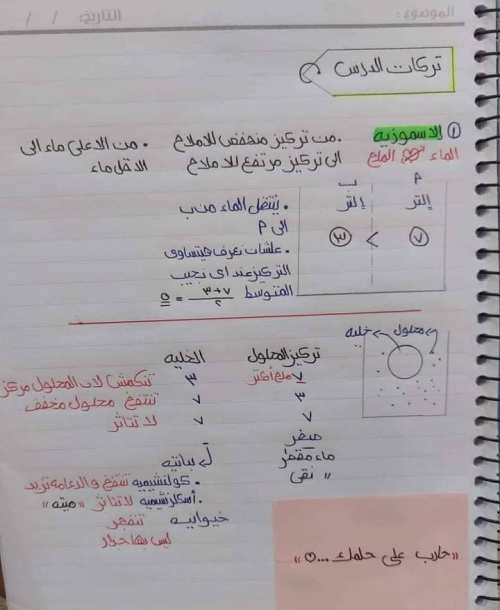 الموضوع:
التاريخ: / /
تركات الدرس
① الاسموزية
الماء الملح
• من تركيز منخفض للاملاح
الى تركيز مرتفع للاملاح
• من الاعلى ماء الى
الاقل ماء
أ ب
إلتر إلتر
٧ > ٣
• ينتقل الماء من ب
الى أ
• علشان نعرف هيتساوى
التركيز عند اى نجيب
المتوسط ٣+٧/٢ = ٥
محلول خلية
تركيز المحلول الخليه
٧ ملح أكتر ٣ تنكمش لان المحلول مركز
٣ ٧ تنتفخ محلول مخفف
٧ ٧ لا تتاثر
صفر
ماء مقطر
" نقى
نباتيه
• كولنشيميه تنتفخ والدعامه تزيد
• اسكلرنشيميه لا تتاثر "ميته"
حيوانيه تنفجر
ليس بها جدار
"حارب على حلمك ...♡"